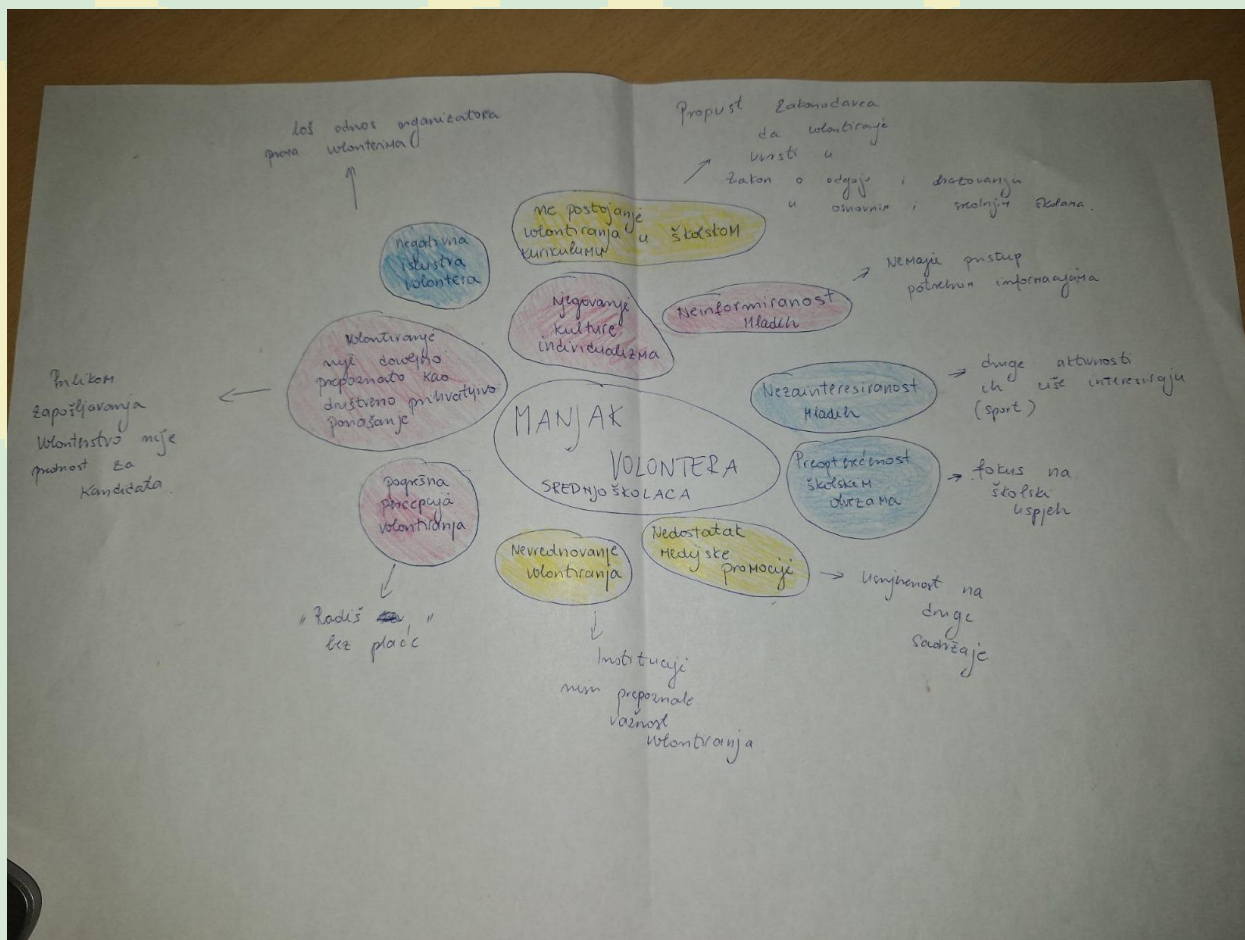 Loš odnos organizatora
prema volonterima
Propust zakonodavca
da volontiranje
uvrsti u
Zakon o odgoju i obrazovanju
u osnovnim i srednjim školama.
ne postojanje
volontiranja u školskom
kurikulumu
negativna
iskustva
volontera
Njegovanje
kulture
individualizma
Neinformiranost
mladih
Nemaju pristup
potrebnim informacijama
Volontiranje
nije dovoljno
prepoznato kao
društveno prihvatljivo
ponašanje
Prilikom
zapošljavanja
volonterstvo nije
prednost za
kandidata
MANJAK
VOLONTERA
SREDNJOŠKOLACA
Nezainteresiranost
mladih
druge aktivnosti
ih više interesiraju
(sport)
Preopterećenost
školskim
obvezama
fokus na
školski
uspjeh
pogrešna
percepcija
volontiranja
"Radiš
bez plaće"
Nevrednovanje
volontiranja
Institucije
nisu prepoznale
važnost
volontiranja
Nedostatak
medijske
promocije
Usmjerenost na
druge
sadržaje